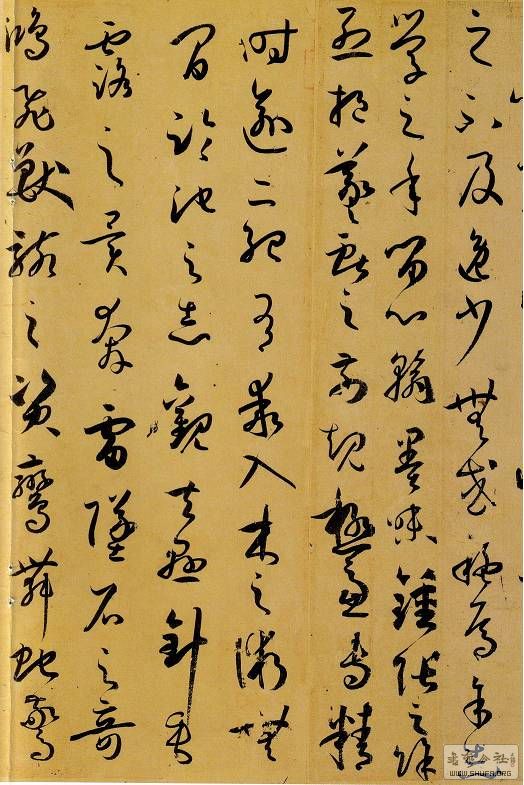 之不及逸少無或疑焉余志
學之年留心翰墨味鍾張之餘
烈挹羲獻之前規極慮專精
時逾二紀有乖入木之術無
間臨池之志觀夫懸針垂
露之異奔雷墜石之奇
鴻飛獸駭之資鸞舞蛇驚
WWW.SHUFA.ORG